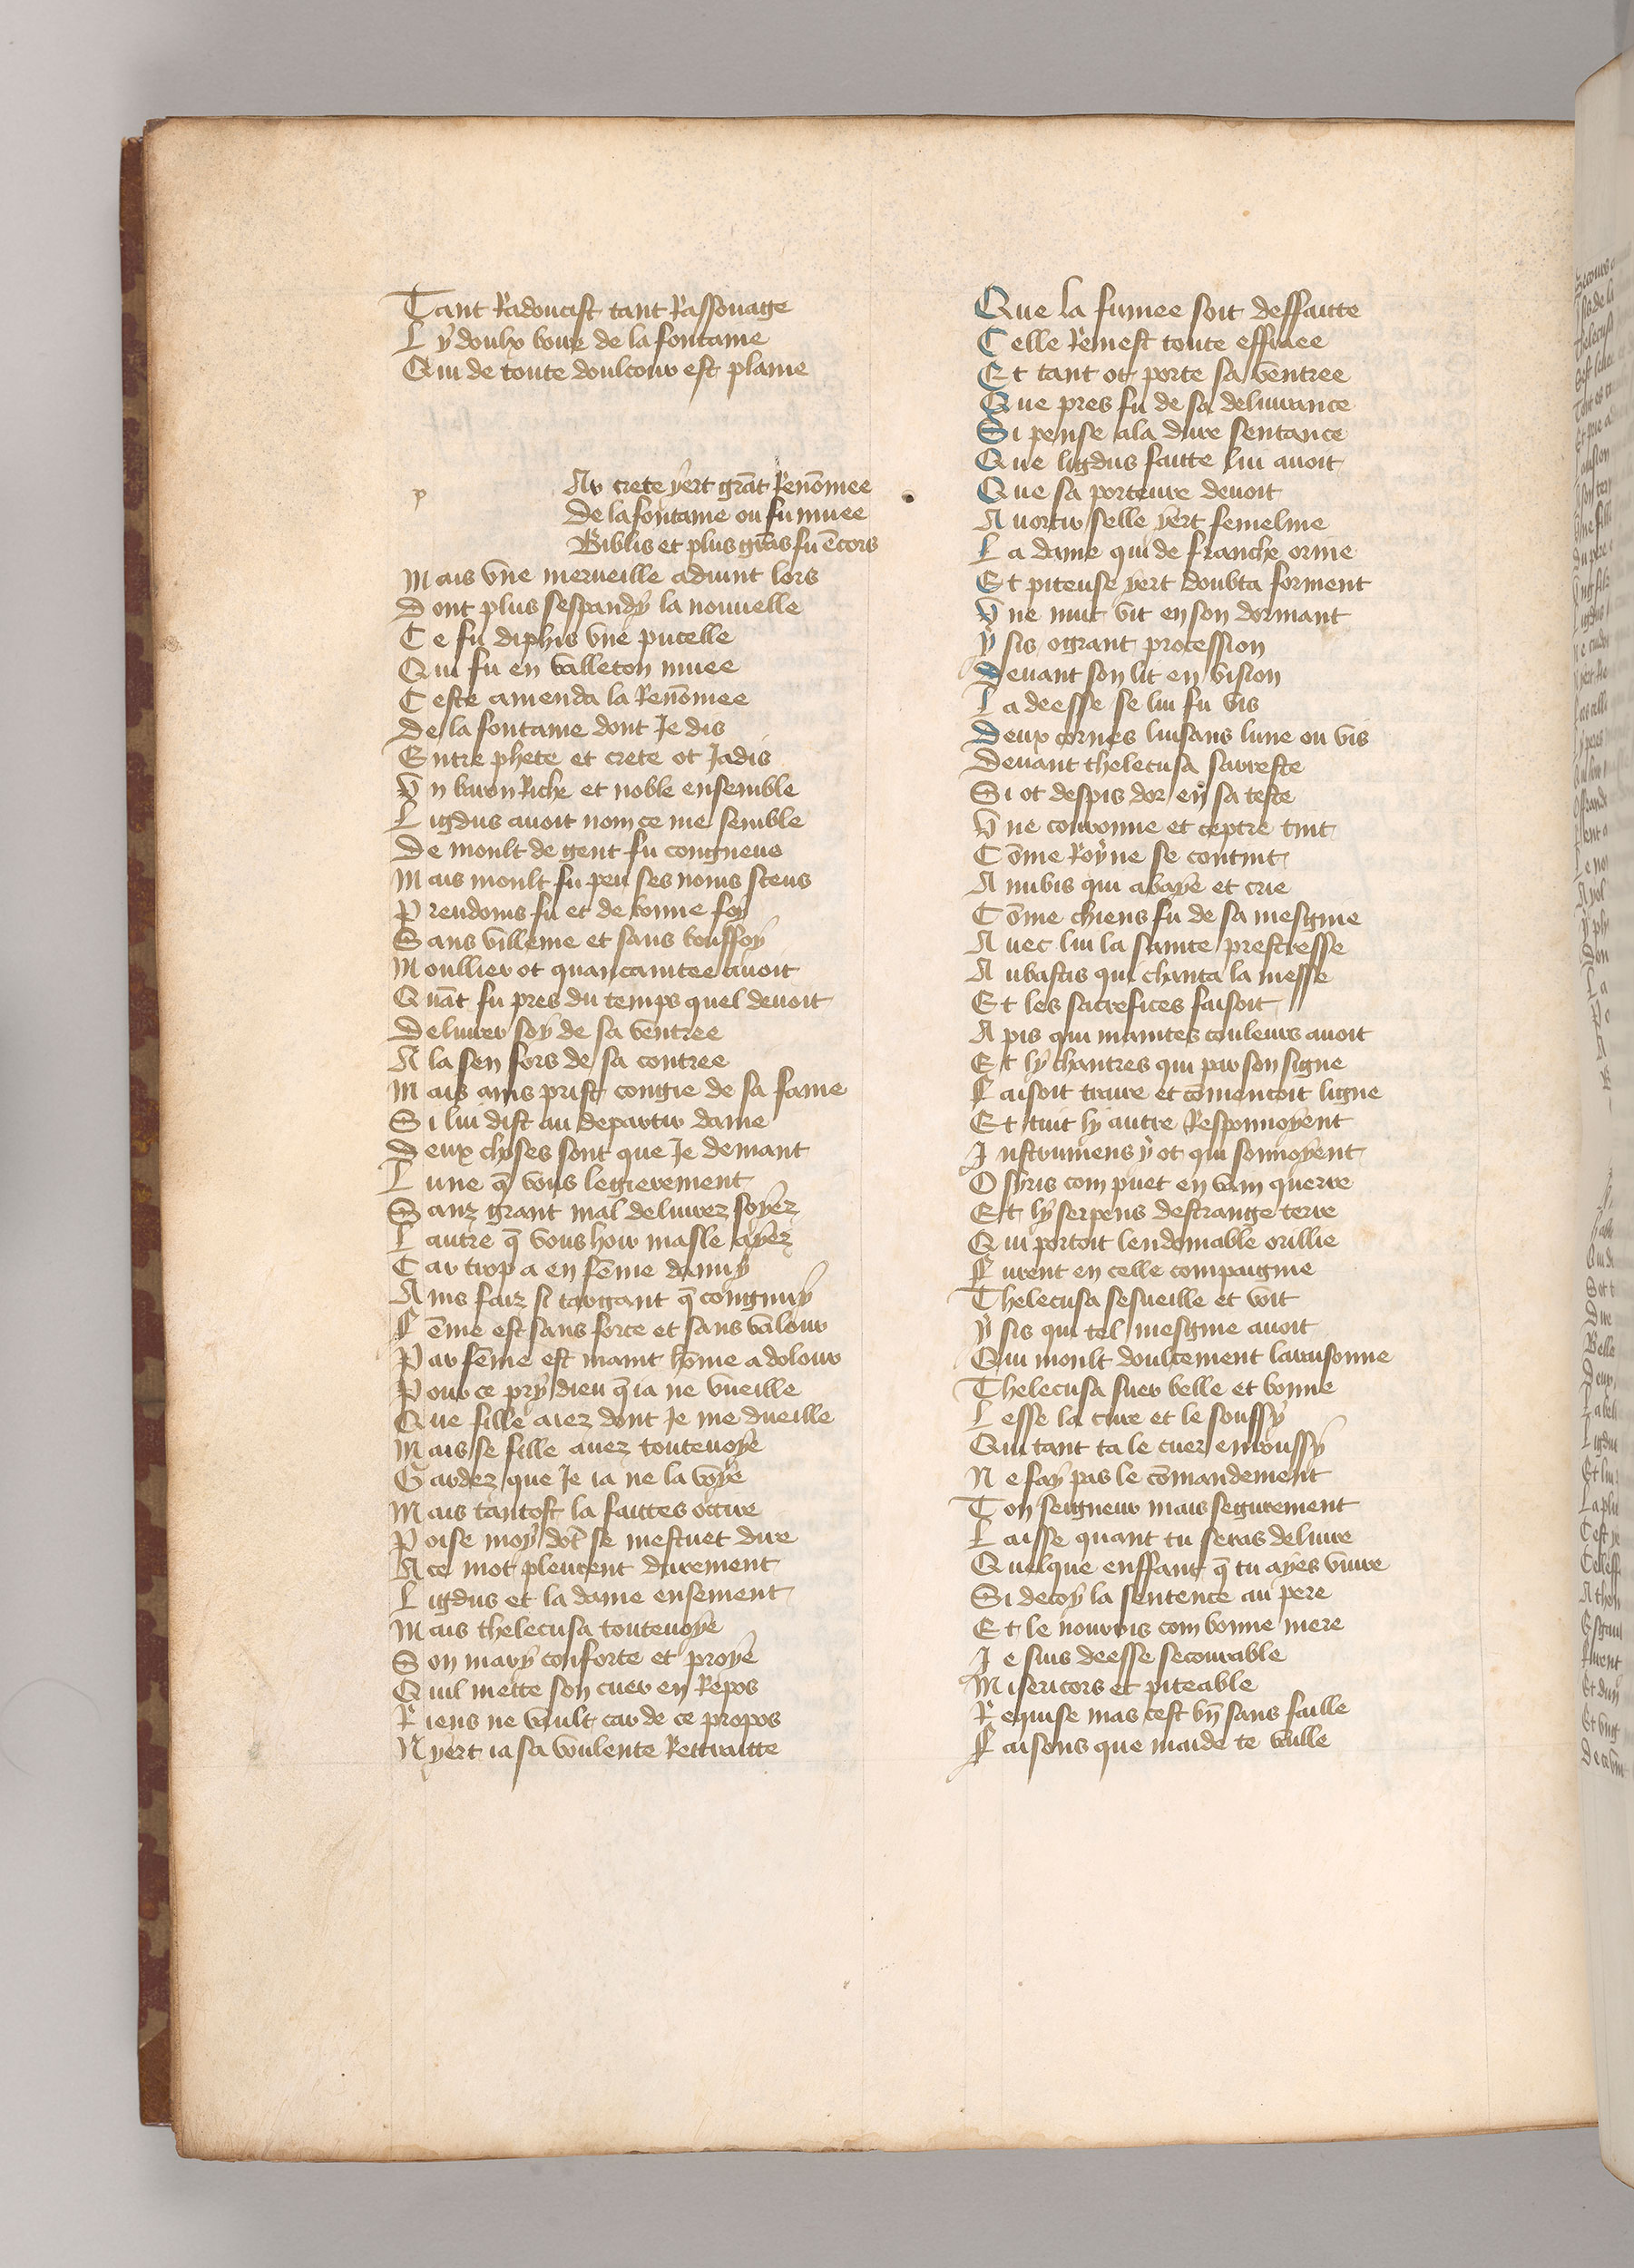 Tant Radoucist tant Rassouage
Ly doulx boire de la fontaine
Qui de toute doulcour est plaine
p
Ar crete yert grāt Renōmee
De la fontaine ou fu muee
Biblis et plus grās fu ēcors
Mais vne merueille aduint lors
Dont plus sespandy la nouuelle
Ce fu diphis vne pucelle
Qui fu en valleton muee
Ceste amenda la Renōmee
De la fontaine dont Je dis
Entre phete et crete ot Jadis
Vn baron Riche et noble ensemble
Ligdus auoit nom ce me semble
De moult de gent fu congneus
Mais moult fu peu ses noms sceus
Preudoms fu et de bonne foy
Sans villenie et sans bouffoy
Moullier ot quancaintee auoit
Quāt fu pres du temps quel deuoit
Deliurer soy de sa ventree
Ala sen fors de sa contree
Mais ains prist congie de sa fame
Si lui dist au departir dame
Deux choses sont que Je demant
Lune q̄ vous legierement
Sanz grant mal deliurez soyez
Lautre q̄ vous hoir masle ayez
Car trop a en fēme danuy
Ains faiz si targant q̄ congnuy
Fēme est sans force et sans valour
Par fēme est maint hōme a dolour
Pour ce pry dieu q̄ ia ne vueille
Que fille aiez dont Je me dueille
Mais se fille auez toutenoye
Gardez que Je ia ne la voye
Mais tantost la faittes occire
Poise moy dōt se mestuet dire
A ce mot pleurent durement
Ligdus et la dame ensement
Mais thelecusa toutenoye
Son mary conforte et proye
Quil mette son cuer en Repos
Riens ne vault car de ce propos
Nyert ia sa voulente Rettraitte
Que la fumee soit deffaitte
Celle Remest toute effraee
Et tant ot porte sa ventree
Que pres fu de sa deliurance
Si pense ala dure sentance
Que ligdus faitte lui auoit
Que sa porteure deuoit
Auortir selle yert femeline
La dame qui de franche orine
Et piteuse yert doubta forment
Vne nuit vit en son dormant
Ysis o grant procession
Deuant son lit en vision
La deesse se lui fu vis
Deux cornes luisans lune ou vis
Deuant thelecusa sarreste
Si ot despis dor en sa teste
Vne couronne et ceptre tint
Cōme Royne se contint
Anubis qui abaye et crie
Cōme chiens fu de sa mesgnie
Auec lui la sainte prestresse
Aubastis qui chanta la messe
Et les sacrefices faisoit
Apis qui maintes couleurs auoit
Et ly chantres qui par son signe
Faisoit traire et cōmencoit ligne
Et tuit ly autre Responnoyent
Instrumens y ot qui sonnoyent
Osyris com puet en vain querre
Et ly serpens destrange terre
Qui portoit lendomable orillie
Furent en celle compaignie
Thelecusa sesueille et voit
Ysis qui tel mesgnie auoit
Qui moult doulcement laraisonne
Thelecusa suer belle et bonne
Lesse la cure et le soussy
Qui tant ta le cuer enroussy
Ne fay pas le cōmandement
Ton seigneur mais segurement
Laisse quant tu seras deliure
Quelque enffant q̄ tu ayes viure
Si decoy la sentence au pere
Et le nourris com bonne mere
Je suis deesse secourable
Misericors et piteable
Requise mas cest bn̄ sans faille
Faisons que maide te vaille